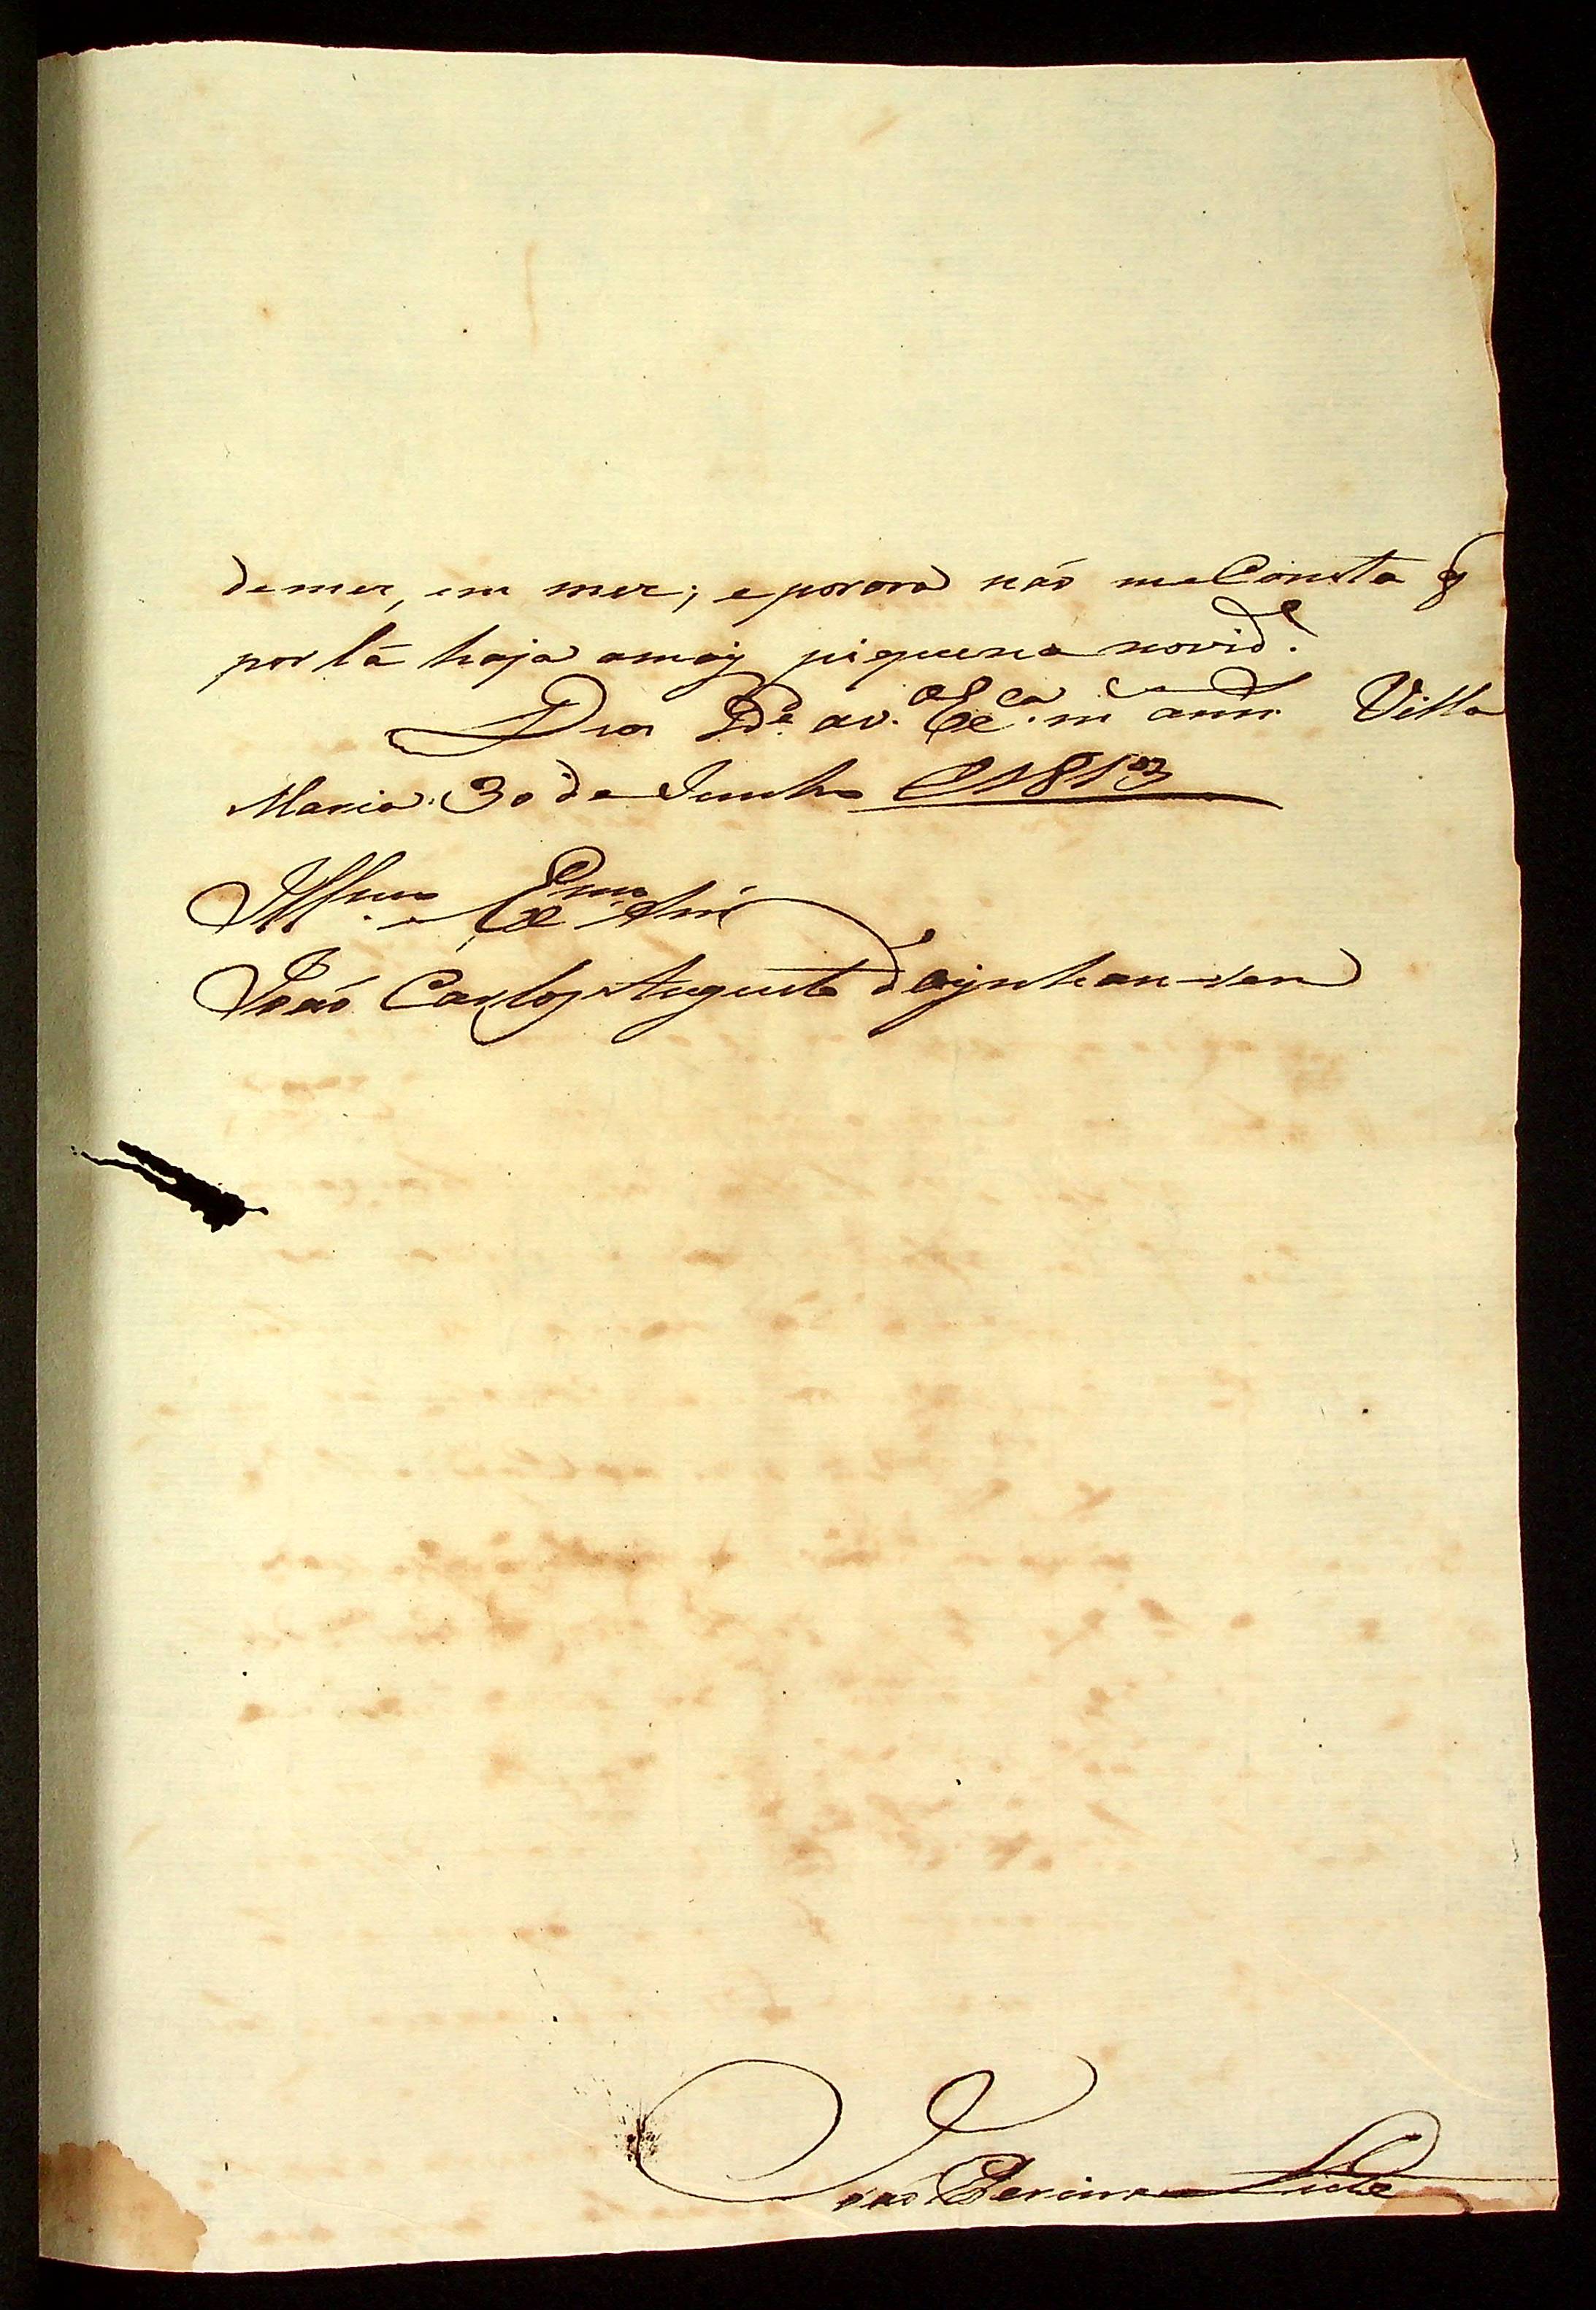 de mez, em mez; eporora não meConsta q̃
por lá haja amaiz piquena novid.e
Deos G.de a V. Ex.ca m.s ann.s Villa
Maria 30 de Junho de 1813
Ill.mo e Ex.mo Snr
João Carlos Augusto d'Oeynhausen
João Pereira Leite